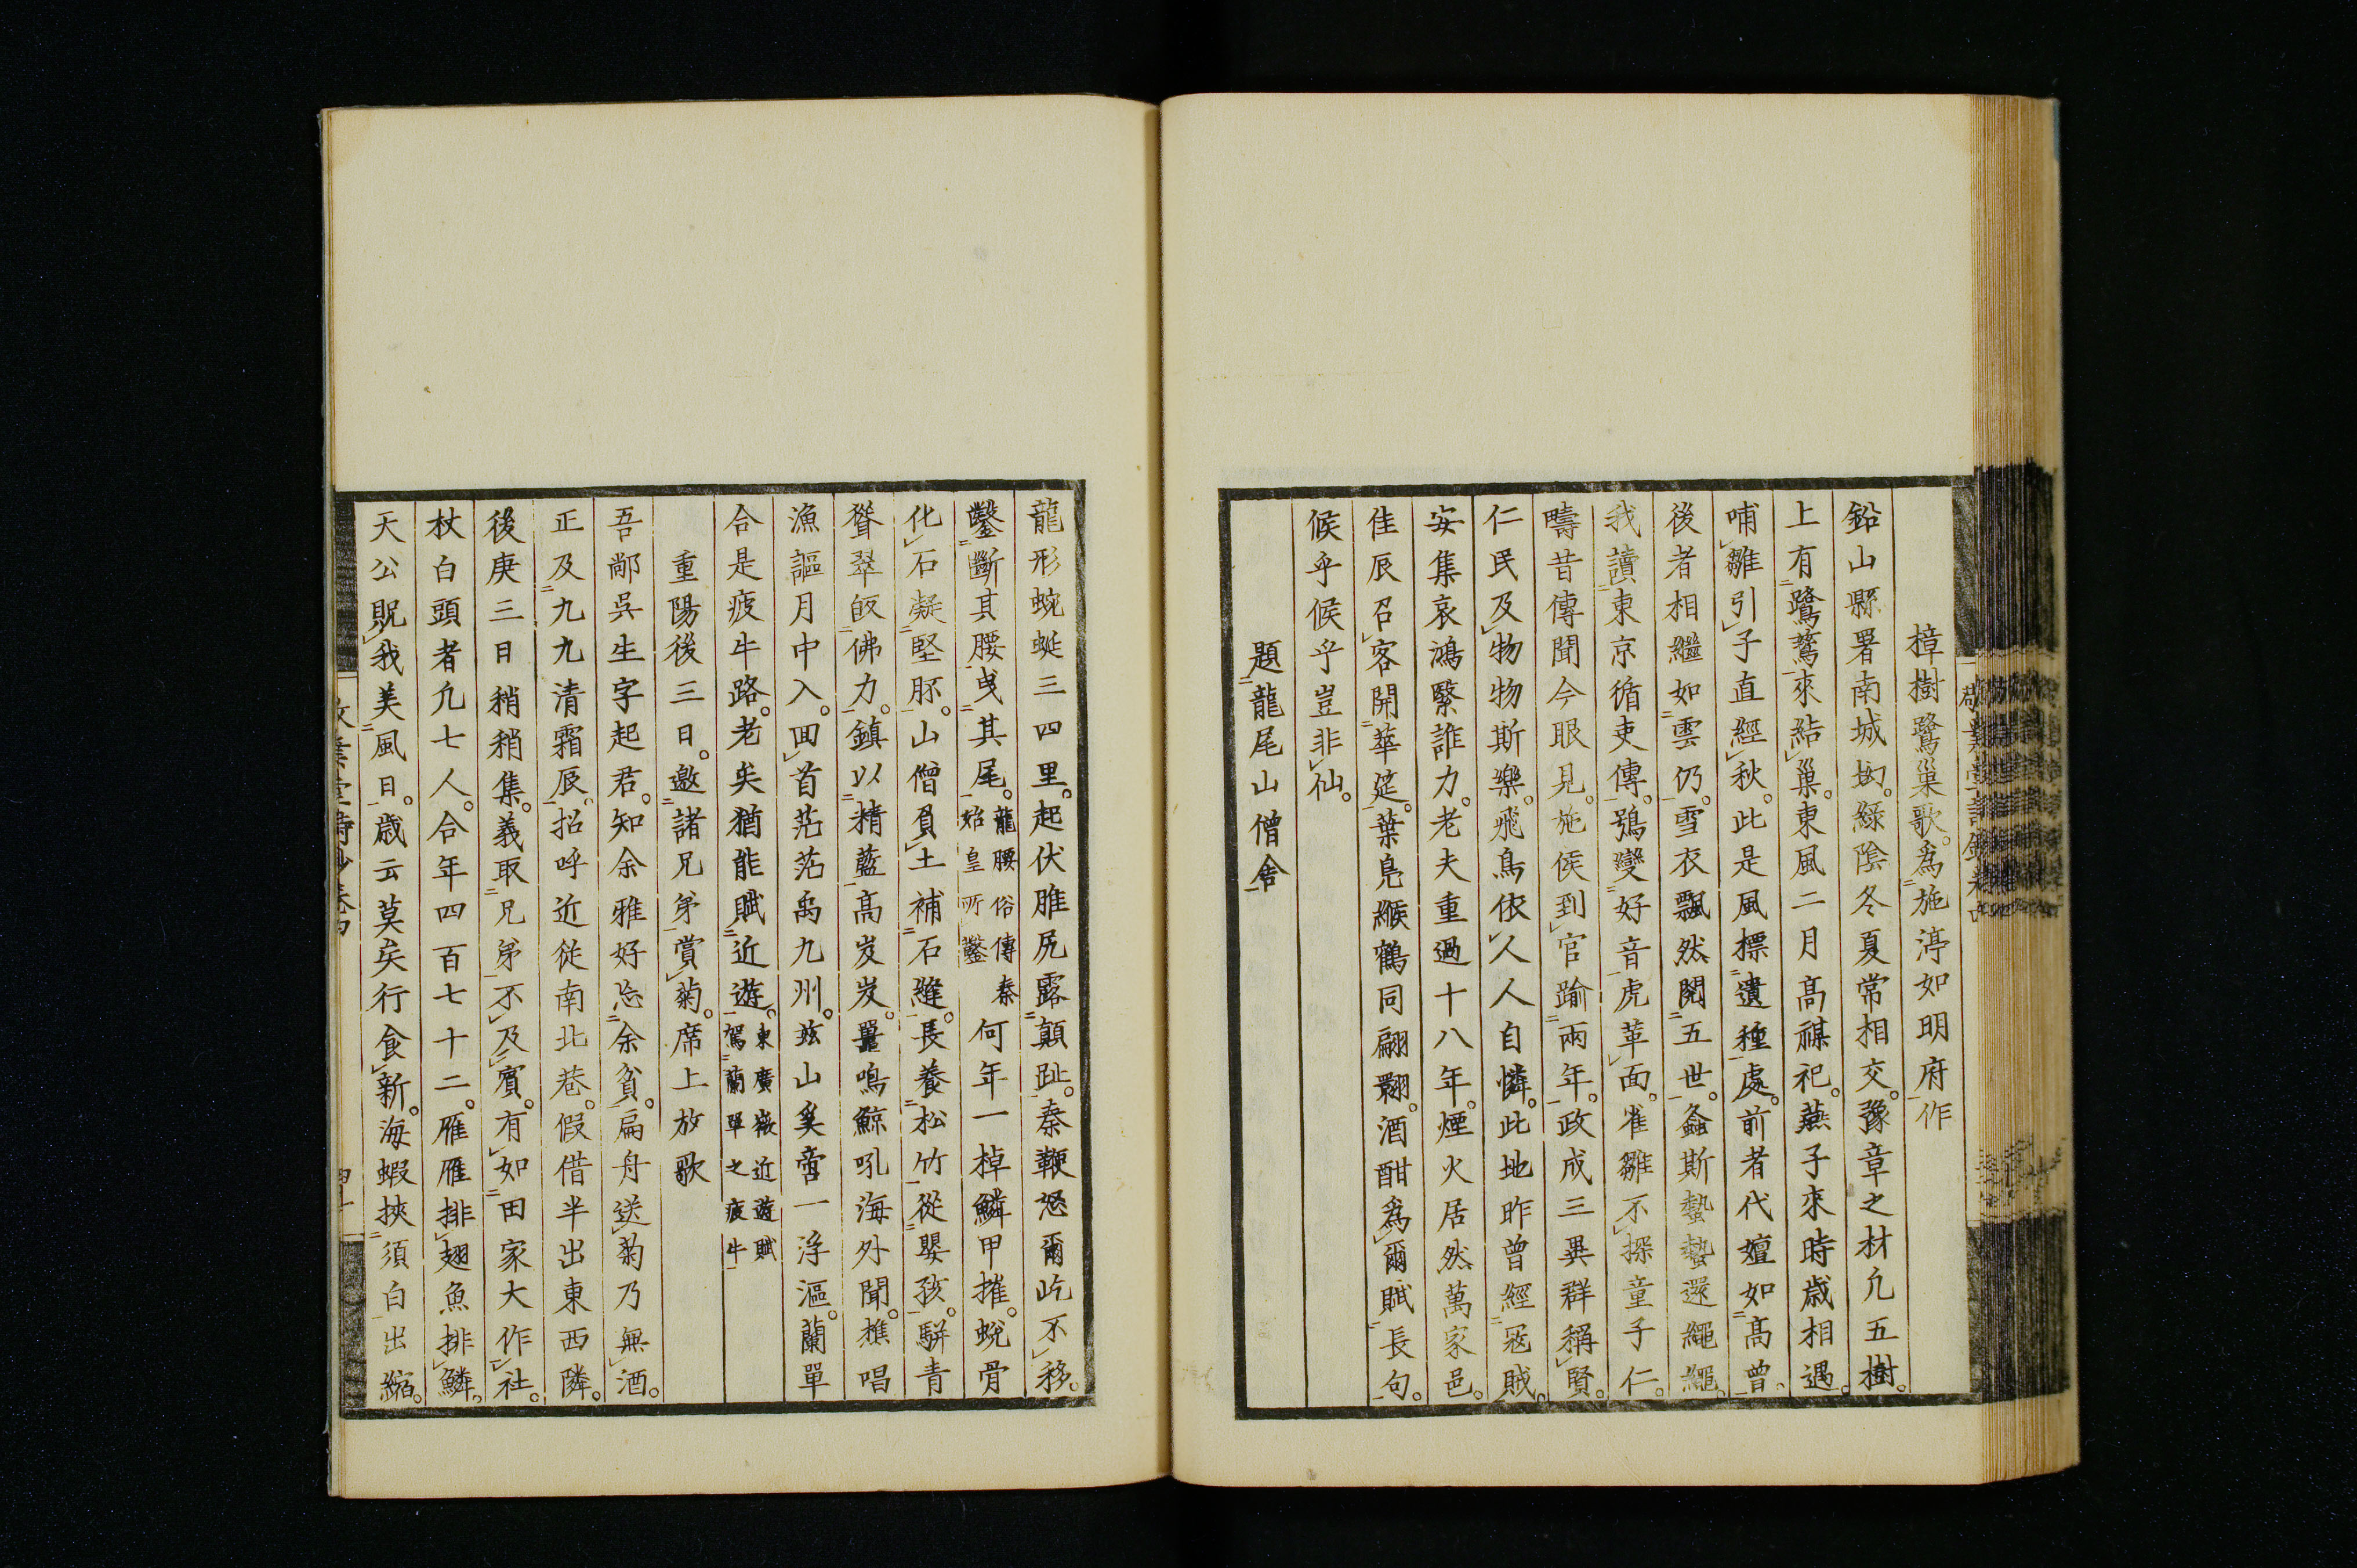 樟樹鷺巢歌。為施渟如明府作
鉛山縣署南城㘭。綠陰冬夏常相交。豫章之材凢五樹。
上有鷺鶿來結巢。東風二月髙禖祀。燕子來時歳相遇。
哺雛引子直經秋。此是風標遺種處。前者代嬗如髙曾。
後者相繼如雲仍。雪衣飄然閱五世。螽斯蟄蟄還繩繩。
我讀東京循吏傳。鴞變好音虎革面。雀雛不探童子仁。
疇昔傳聞今眼見。施侯到官踰兩年。政成三異群稱賢。
仁民及物物斯樂。飛鳥依人人自憐。此地昨曾經寇賊。
安集哀鴻繄誰力。老夫重過十八年。煙火居然萬家邑。
佳辰召客開華筵。葉鳧緱鶴同翩翾。酒酣為爾賦長句。
候乎候乎豈非仙。
題龍尾山僧舍
龍形蜿蜒三四里。起伏脽尻露顛趾。秦鞭怒爾屹不移。
鑿斷其腰曳其尾。龍腰俗傳秦始皇所鑿何年一掉鱗甲摧。蛻骨
化石凝堅胚。山僧負土補石縫。長養松竹從嬰孩。駢青
聳翠皈佛力。鎮以精藍髙岌岌。鼉鳴鯨吼海外聞。樵唱
漁謳月中入。回首茫茫禹九州。玆山奚啻一浮漚。蘭單
合是疲牛路。老矣猶能賦近遊。東廣微近遊賦駕蘭單之疲牛
重陽後三日。邀諸兄弟賞菊。席上放歌
吾鄰吳生字起君。知余雅好忘余貧。扁舟送菊乃無酒。
正及九九清霜辰。招呼近從南北巷。假借半出東西隣。
後庚三日稍稍集。義取兄弟不及賓。有如田家大作社。
杖白頭者凢七人。合年四百七十二。雁雁排翅魚排鱗。
天公貺我美風日。歳云莫矣行食新。海蝦挾須白出縮。